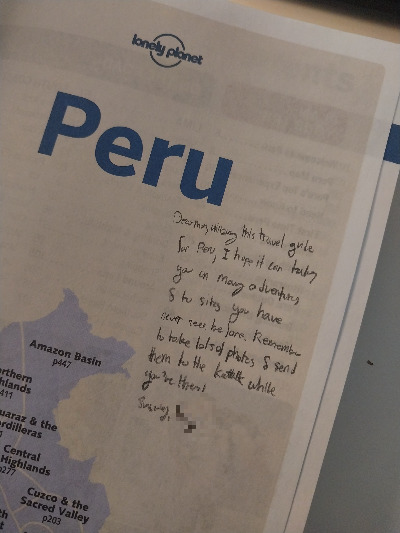 lonely planet
Peru
this travel guide
for Peru, I hope it can take
you on many adventures
& to sites you have
never seen before. Remember
to take lots of photos & send
them to the while
you're there!
Amazon Basin
p447
hlands
411
uaraz & the
rdilleras
Central
Highlands
p277
Cuzco & the
Sacred Valley
p203